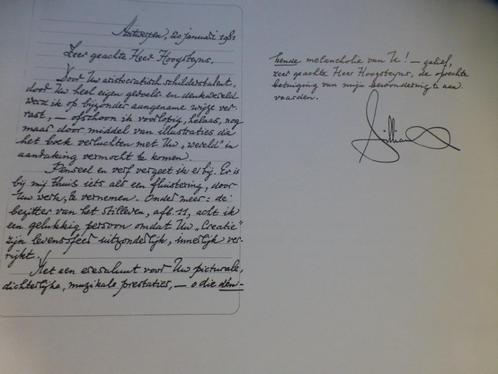 Antwerpen, 20 januari 1981
Zeer geachte Heer Hoogsteyns.
Door Uw aristocratisch schilderstalent,
door Uw heel eigen gevoels- en denkwereld
werd ik op bijzonder aangename wijze ver-
rast, — ofschoon ik voorlopig, helaas, nog
maar door middel van illustraties die
het boek verluchten met Uw „wereld” in
aanraking vermocht te komen.
Penseel en verf vergeet ik erbij. Er is
bij mij thuis iets als een fluistering, door
Uw werk, te vernemen. Onder meer: de
bezitter van het stilleven, afb. 11, acht ik
een gelukkig persoon omdat Uw „Creatie”
zijn levenssfeer uitzonderlijk, innerlijk ver-
rijkt.
Met een eresaluut voor Uw picturale,
dichterlijke, muzikale prestaties, — o die
kende melancholie van U! — gelief,
zeer geachte Heer Hoogsteyns, de oprechte
betuiging van mijn bewondering te aan-
vaarden.